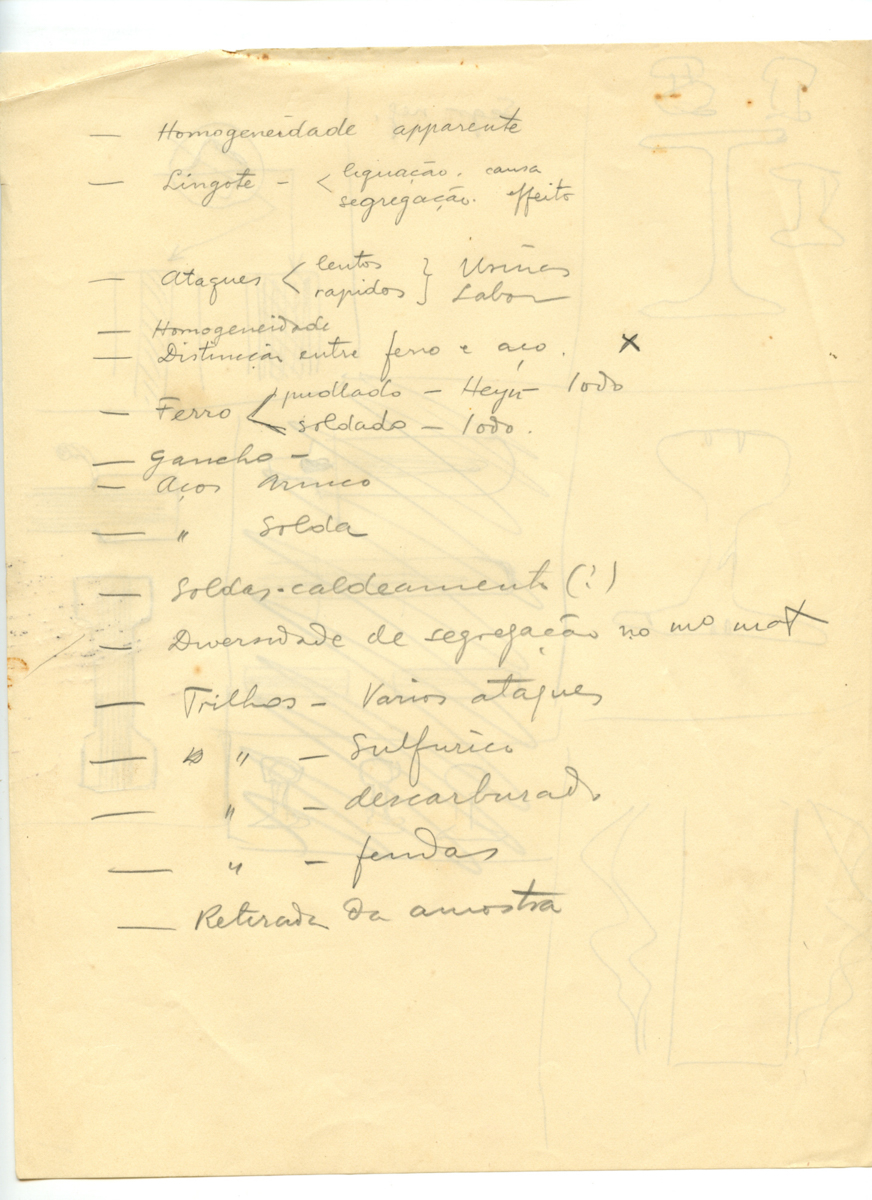 — Homogeneidade apparente
— Lingote – < liquação. causa
segregação. effeito
— Ataques < lentos } Usinas
rapidos } Labor
— Homogeneidade
— Distinção entre ferro e aço. x
— Ferro < pudlado – Heyn Iodo
soldado – Iodo.
— Gancho –
— Aços Armco
— " Solda
— Soldas. caldeamento (?)
— Diversidade de segregação no mo mat
— Trilhos – Varios ataques
— " – Sulfurico
— " – descarburado
— " – fendas
— Retirada da amostra